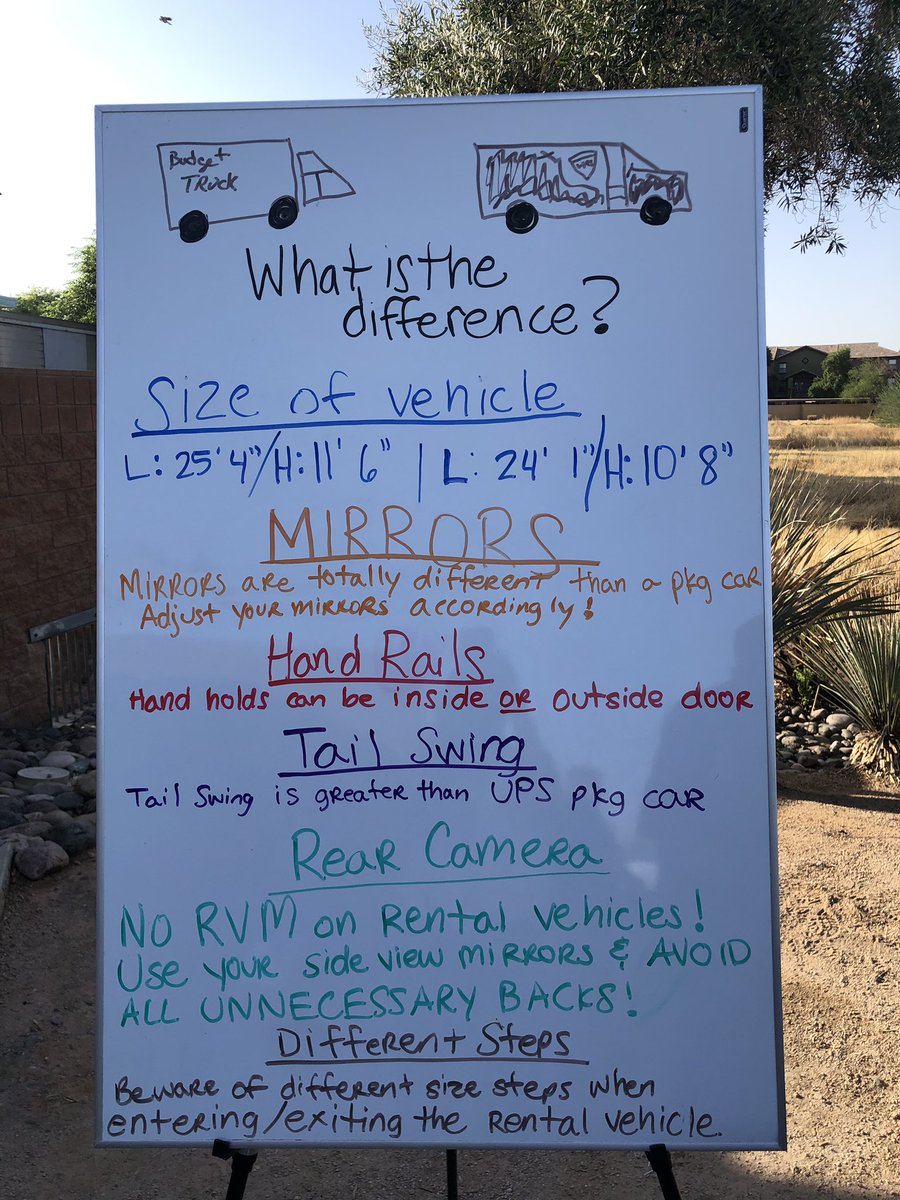 Budget
TRuck
UPS
What is the
difference?
Size of vehicle
L: 25' 4"/H: 11' 6" | L: 24' 1"/H: 10' 8"
MIRRORS
MIRRORS are totally different than a pkg car
Adjust your mirrors accordingly!
Hand Rails
Hand holds can be inside OR outside door
Tail Swing
Tail Swing is greater than UPS pkg car
Rear Camera
No RVM on Rental vehicles!
Use your side view mirrors & AVOID
ALL UNNECESSARY BACKS!
Different Steps
Beware of different size steps when
entering/exiting the Rental vehicle.